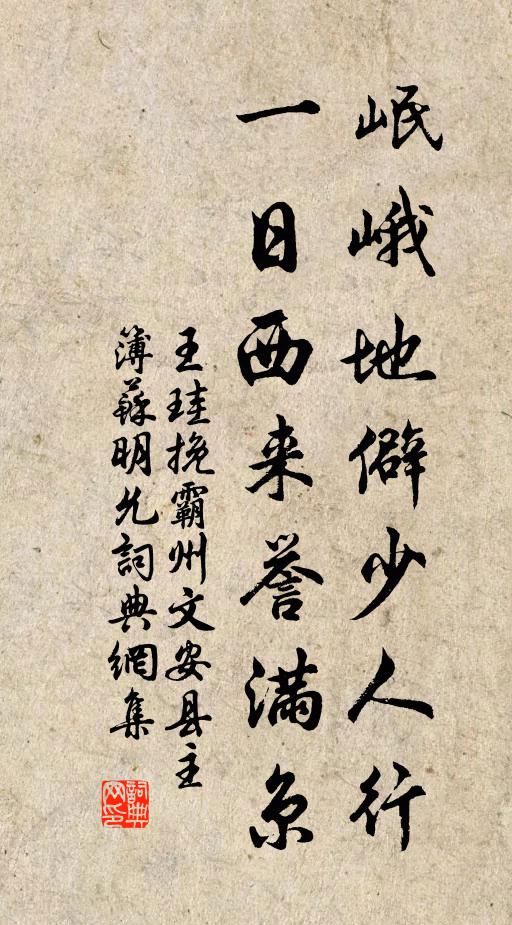 岷峨地僻少人行
一日西来誉满京
王珪挽霸州文安县主
簿蘇明允詞典網集
詞典
网印